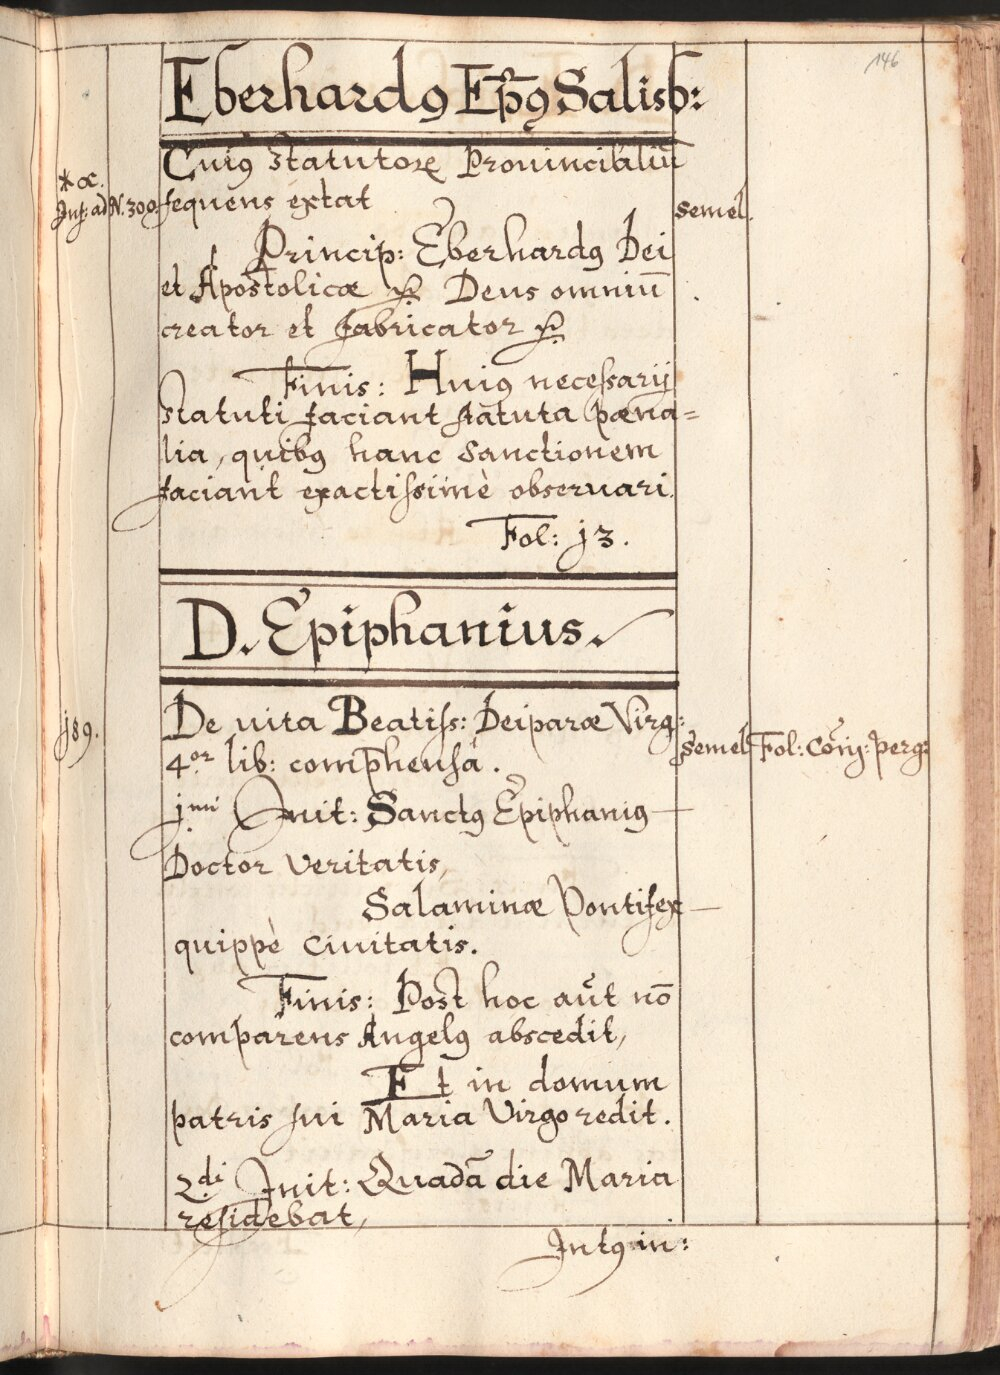 146
Eberhardꝰ Ep̃ꝰ Salisb:
Cuiꝰ statutorꝝ Prouincialiū
* æ.
Ins: ad N. 300. sequens extat semel.
Princip: Eberhardꝰ Dei
et Apostolicæ ꝛc Deus omniū
creator et fabricator ꝛc
Finis: Huiꝰ necessarij
statuti faciant statuta pœna=
lia, quibꝰ hanc sanctionem
faciant exactissimè obseruari.
Fol: j3.
D. Epiphanius.
j89. De uita Beatiss: Deiparæ Virg: semel Fol: Cõĩj: perg:
4.or lib: comp̃hensa.
j.mi Init: Sanctꝰ Epiphaniꝰ —
Doctor veritatis,
Salaminæ Pontifex —
quippè ciuitatis.
Finis: Post hoc aũt nõ
comparens Angelꝰ abscedit,
Et in domum
patris sui Maria Virgo redit.
2.di Init: Quadã die Maria
residebat,
Intꝰ in: